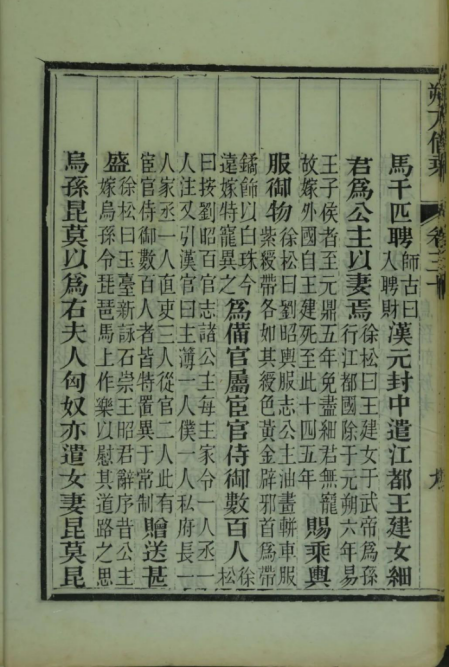 馬千匹聘師古曰入聘財漢元封中遣江都王建女細
君為公主以妻焉徐松曰王建女于武帝為孫
行江都國除于元朔六年易
王子侯者至元鼎五年免盡細君無寵
故嫁外國自王建死至此十四五年賜乘輿
服御物徐松曰劉昭輿服志公主油畫軿車服
紫綬帶各如其綬色黃金辟邪首為帶
鐍飾以白珠今
遠嫁特寵異之為備官屬宦官侍御數百人徐
松
曰按劉昭百官志諸公主每主家令一人丞一
人注又引漢官曰主薄一人僕一人私府長一
人家丞一人直吏三人從官二人此有
宦官侍御數百人者皆特置異于常制贈送甚
盛徐松曰玉臺新詠石崇王昭君辭序昔公主
嫁烏孫令琵琶馬上作樂以慰其道路之思
烏孫昆莫以為右夫人匈奴亦遣女妻昆莫昆
朔方備乘
卷三十